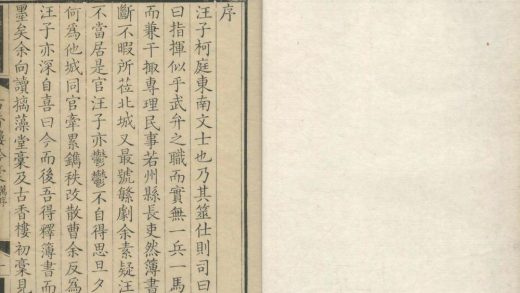 序
汪子柯庭東南文士也乃其筮仕則司
曰指揮似乎武弁之職而實無一兵一馬
而兼干掫專理民事若州縣長吏然簿書
斷不暇所莅北城又最號繁劇余素疑汪
不當居是官汪子亦鬱鬱不自得思旦夕
何為他城同官牽累鐫秩改散曹余反為
汪子亦深自喜曰今而後吾得釋簿書而
墨矣余向讀摛藻堂稾及古香樓初稾見